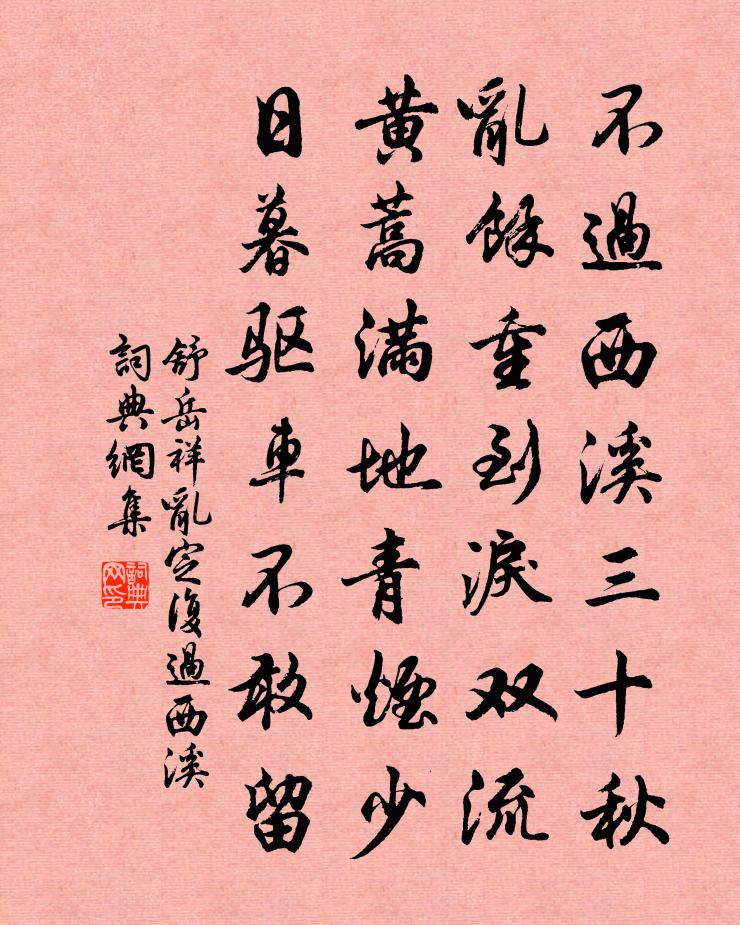 不過西溪三十秋
亂餘重到淚双流
黃蒿滿地青煙少
日暮驱車不敢留
舒岳祥亂定復過西溪
詞典網集
詞典
网印